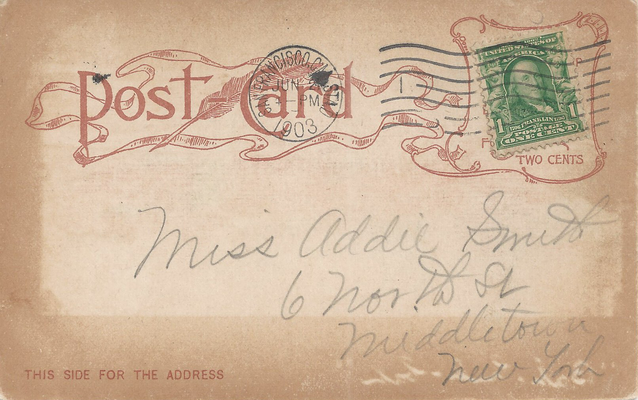 Post-Card
SAN FRANCISCO, CAL.
JUN
PM
1903
1
UNITED STATES OF AMERICA
1 FRANKLIN 1
POSTAGE
ONE CENT
TWO CENTS
Miss Addie Smith
6 North St
Middletown
New York
THIS SIDE FOR THE ADDRESS